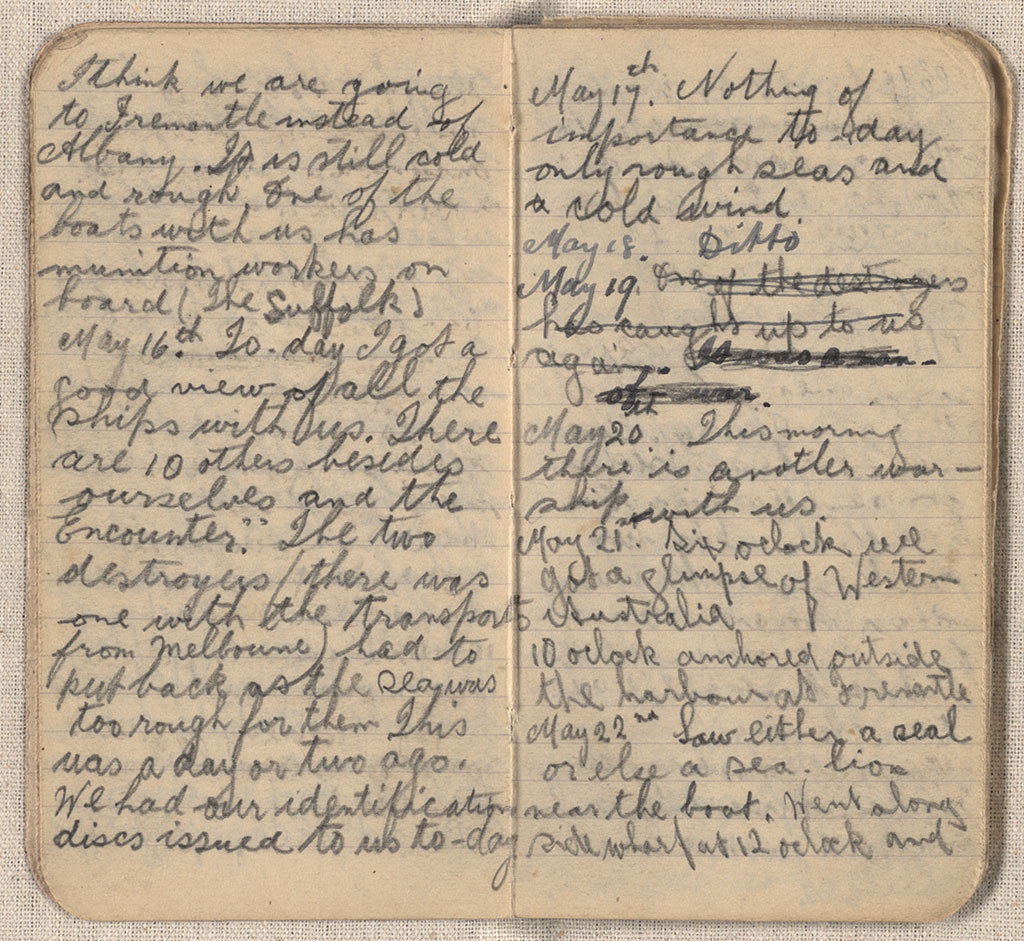 I think we are going
to Fremantle instead of
Albany. It is still cold
and rough. One of the
boats with us has
munition workers on
board (The Suffolk)
May 16.th To-day I got a
good view of all the
ships with us. There
are 10 others besides
ourselves and the
Encounter." The two
destroyers (there was
one with the transports
from Melbourne) had to
put back as the sea was
too rough for them This
was a day or two ago.
We had our identification
discs issued to us to-day
May 17th. Nothing of
importance to-day
only rough seas and
a cold wind.
May 18. Ditto
May 19. One of the destroyers
has caught up to us
again. It was a man-
of war.
May 20th This morning
there is another war-
ship with us.
May 21st. Six oclock we
got a glimpse of Western
Australia
10 oclock anchored outside
the harbour at Fremantle
May 22nd Saw either a seal
or else a sea. lion
near the boat. Went along
side wharf at 12 oclock and